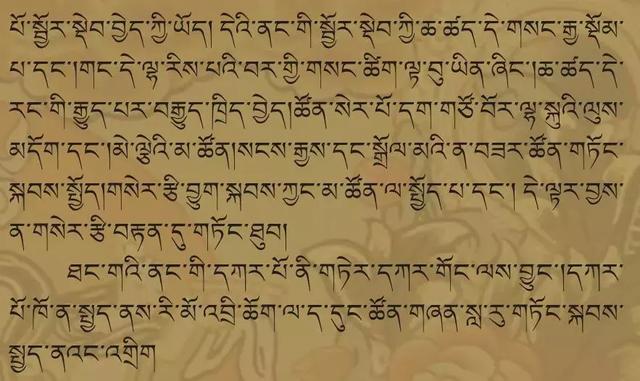 པོ་སྦྱོར་སྡེབ་བྱེད་ཀྱི་ཡོད། དེའི་ནང་གི་སྦྱོར་སྡེབ་ཀྱི་ཆ་ཚད་དེ་གསང་རྒྱ་སྡོམ་
པ་དང་།གང་དེ་ལྷ་རིས་པའི་བར་གྱི་གསང་ཚིག་ལྟ་བུ་ཡིན་ཞིང་།ཆ་ཚད་དེ་
རང་གི་རྒྱུད་པར་བརྒྱུད་ཁྲིད་བྱེད།ཚོན་སེར་པོ་དག་གཙོ་བོར་ལྷ་སྐུའི་ལུས་
མདོག་དང་།མེ་ལྕེའི་མ་ཚོན།སངས་རྒྱས་དང་སྒྲོལ་མའི་ན་བཟར་ཚོན་གཏོང་
སྐབས་སྤྱོད།གསེར་རྩི་བྱུག་སྐབས་ཀྱང་མ་ཚོན་ལ་སྤྱོད་པ་དང་། དེ་ལྟར་བྱས་
ན་གསེར་རྩི་བརྟན་དུ་གཏོང་ཐུབ།
ཐང་གའི་ནང་གི་དཀར་པོ་ནི་གཏེར་དཀར་གོང་ལས་བྱུང་།དཀར་
པོ་ཁོ་ན་སྤྱད་ནས་རི་མོ་འབྲི་ཆོག་ལ་ད་དུང་ཚོན་གཞན་སླ་རུ་གཏོང་སྐབས་
སྤྱད་ནའང་འགྲིག